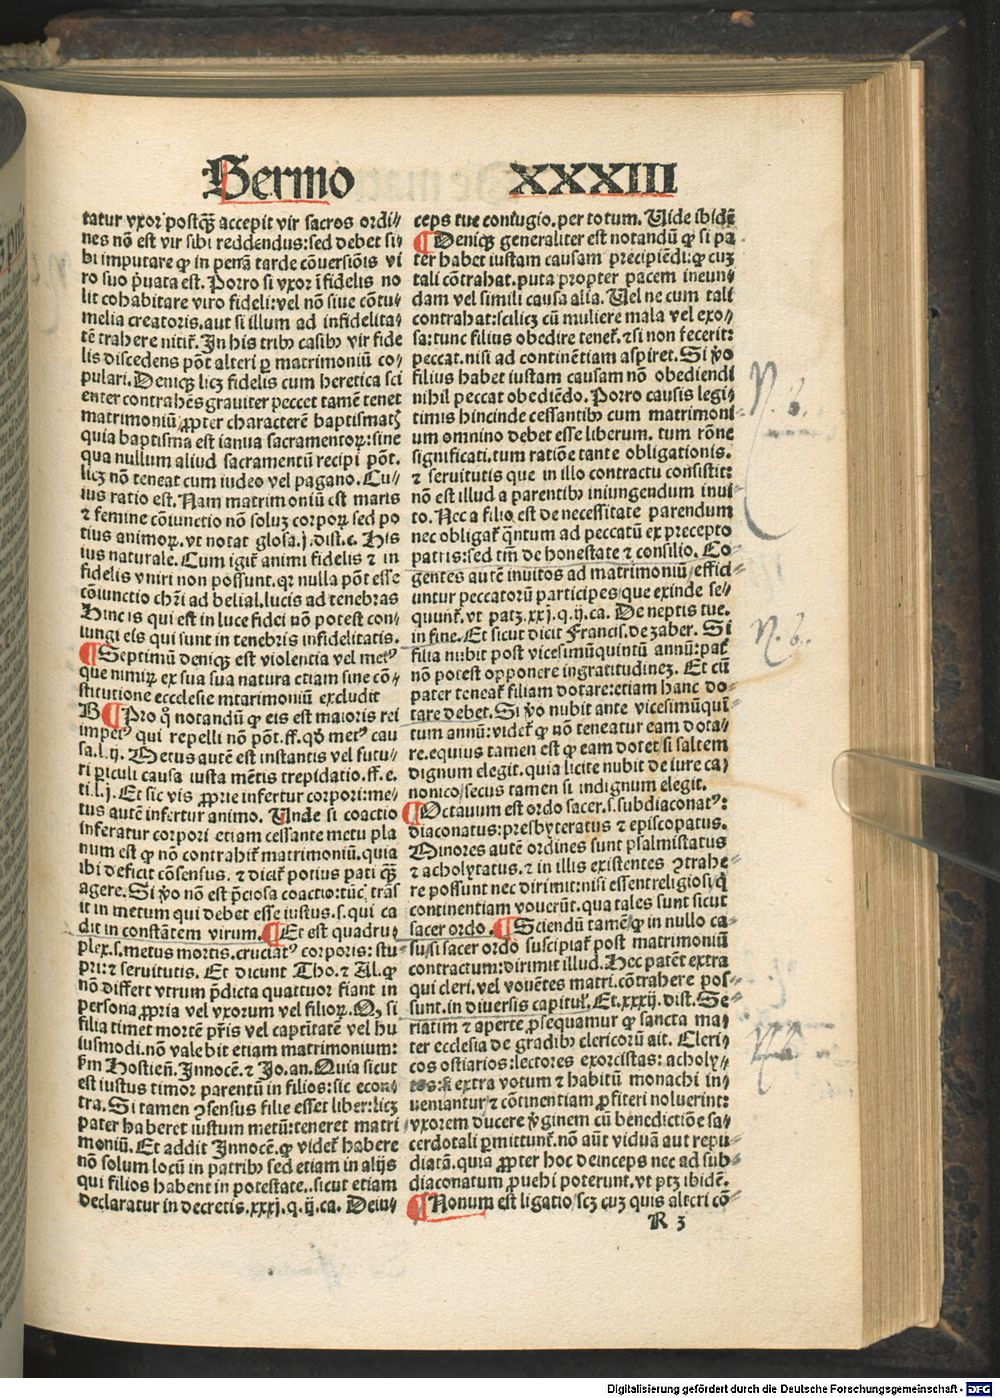 Sermo XXXIII
tatur vxor postq̃ accepit vir sacros ordi⸗
nes nõ est vir sibi reddendus: sed debet si⸗
bi imputare ꝙ in penã tarde cõuersiõis vi
ro suo p̃uata est. Porro si vxor ĩfidelis no
lit cohabitare viro fideli: vel nõ siue cõtu⸗
melia creatoris. aut si illum ad infidelita⸗
tẽ trahere nitiť. In his tribꝰ casibꝰ vir fide
lis discedens põt alteri ꝑ matrimoniũ co⸗
pulari. Deniqꝫ licꝫ fidelis cum heretica sci
enter contrahẽs grauiter peccet tamẽ tenet
matrimoniũ ꝓpter characterẽ baptismatꝭ
quia baptisma est ianua sacramentoꝝ: sine
qua nullum aliud sacramentũ recipi põt.
licꝫ nõ teneat cum iudeo vel pagano. Cu⸗
ius ratio est. Nam matrimoniũ est maris
⁊ femine cõiunctio nõ soluꝫ corpoꝝ sed po
tius animoꝝ. vt notat glosa. j. dist. c. His
ius naturale. Cum igiť animi fidelis ⁊ in
fidelis vniri non possunt. qꝛ nulla põt esse
cõiunctio chr̃i ad belial. lucis ad tenebras
Hinc is qui est in luce fidei nõ potest con⸗
iungi eis qui sunt in tenebris infidelitatis.
¶ Septimũ deniqꝫ est violentia vel metꝰ
que nimiꝝ ex sua sua natura etiam sine cõ⸗
stitutione eccclesie mtarimoniũ excludit
B ¶ Pro q̊ notandũ ꝙ eis est maioris rei
impetꝰ qui repelli nõ põt. ff. qð metꝰ cau
sa. l. ij. Metus autẽ est instantis vel futu⸗
ri ꝑiculi causa iusta mẽtis trepidatio. ff. e.
ti. l. j. Et sic vis ꝓprie infertur corpori: me⸗
tus autẽ infertur animo. Unde si coactio
inferatur corpori etiam cessante metu pla
num est ꝙ nõ contrahiť matrimoniũ. quia
ibi deficit cõsensus. ⁊ diciť potius pati q̃ꝫ
agere. Si ṽo nõ est p̃ciosa coactio: tũc trãs
it in metum qui debet esse iustus. s. qui ca
dit in constãtem virum. ¶ Et est quadru⸗
plex. s. metus mortis. cruciatꝰ corporis: stu⸗
pri: ⁊ seruitutis. Et dicunt Tho. ⁊ Al. ꝙ
nõ differt vtrum p̃dicta quattuor fiant in
persona ꝓpria vel vxorum vel filioꝝ. Q, si
filia timet mortẽ pr̃is vel captitatẽ vel hu
iusmodi. nõ valebit etiam matrimonium:
ẜm Hostieñ. Innocẽ. ⁊ Jo. an. Quia sicut
est iustus timor parentũ in filios: sic econ⸗
tra. Si tamen ꝯsensus filie esset liber: licꝫ
pater haberet iustum metũ: teneret matri
moniũ. Et addit Innocẽ. ꝙ videť habere
nõ solum locũ in patribꝰ sed etiam in alijs
qui filios habent in potestate.. sicut etiam
declaratur in decretis. xxxj. q. ij. ca. Dein⸗
ceps tue coniugio. per totum. Uide ibidẽ
¶ Deniqꝫ generaliter est notandũ ꝙ si pa
ter habet iustam causam precipiẽdi: ꝙ cuꝫ
tali cõtrahat. puta propter pacem ineun⸗
dam vel simili causa alia. Uel ne cum tali
contrahat: scilicꝫ cũ muliere mala vel exo⸗
sa: tunc filius obedire teneť. ⁊ si non fecerit:
peccat. nisi ad continẽtiam aspiret. Si ṽo
filius habet iustam causam nõ obediendi
nihil peccat obediẽdo. Porro causis legi⸗
timis hincinde cessantibꝰ cum matrimoni⸗
um omnino debet esse liberum. tum rõne
significati. tum ratiõe tante obligationis.
⁊ seruitutis que in illo contractu consistit:
nõ est illud a parentibꝰ iniungendum inui⸗
to. Nec a filio est de necessitate parendum
nec obligať q̃ntum ad peccatũ ex precepto
patris: sed tm̃ de honestate ⁊ consilio. Co⸗
gentes autẽ inuitos ad matrimoniũ/ effici⸗
untur peccatorũ participes/ que exinde se⸗
quunť. vt patꝫ. xxj. q. ij. ca. De neptis tue.
in fine. Et sicut dicit Francis. de zaber. Si
filia nubit post vicesimũquintũ annũ: pať
nõ potest opponere ingratitudineꝫ. Et cũ
pater teneať filiam dotare: etiam hanc do⸗
tare debet. Si ṽo nubit ante vicesimũquĩ⸗
tum annũ: videť ꝙ nõ teneatur eam dota⸗
re. equius tamen est ꝙ eam dotet si saltem
dignum elegit. quia licite nubit de iure ca⸗
nonico/ secus tamen si indignum elegit.
¶ Octauum est ordo sacer. s. subdiaconatꝰ:
diaconatus: presbyteratus ⁊ episcopatus.
Minores autẽ ordines sunt psalmistatus
⁊ acholytatus. ⁊ in illis existentes ꝯtrahe⸗
re possunt nec dirimit: nisi essent religiosi/ q̃
continentiam vouerũt. qua tales sunt sicut
sacer ordo. ¶ Sciendũ tamẽ ꝙ in nullo ca⸗
su/ si sacer ordo suscipiať post matrimoniũ
contractum: dirimit illud. Hec patẽt extra
qui cleri. vel vouẽtes matri. cõtrahere pos⸗
sunt. in diuersis capituľ. Et. xxxij. dist. Se⸗
riatim ⁊ aperte ꝓsequamur ꝙ sancta ma⸗
ter ecclesia de gradibꝰ clericorũ ait. Cleri⸗
cos ostiarios: lectores exorcistas: acholy⸗
tos: si extra votum ⁊ habitũ monachi in⸗
ueniantur/ ⁊ cõtinentiam ꝓfiteri noluerint:
vxorem ducere ṽginem cũ benedictiõe sa⸗
cerdotali ꝑmittunť. nõ aũt viduã aut repu⸗
diatã. quia ꝓpter hoc deinceps nec ad sub⸗
diaconatum ꝓuehi poterunt. vt ptꝫ ibidẽ.
¶ Nonum est ligatio/ scꝫ cuꝫ quis alteri cõ⸗
R 3
N. b.
N. b.
Digitalisierung gefördert durch die Deutsche Forschungsgemeinschaft - DFG